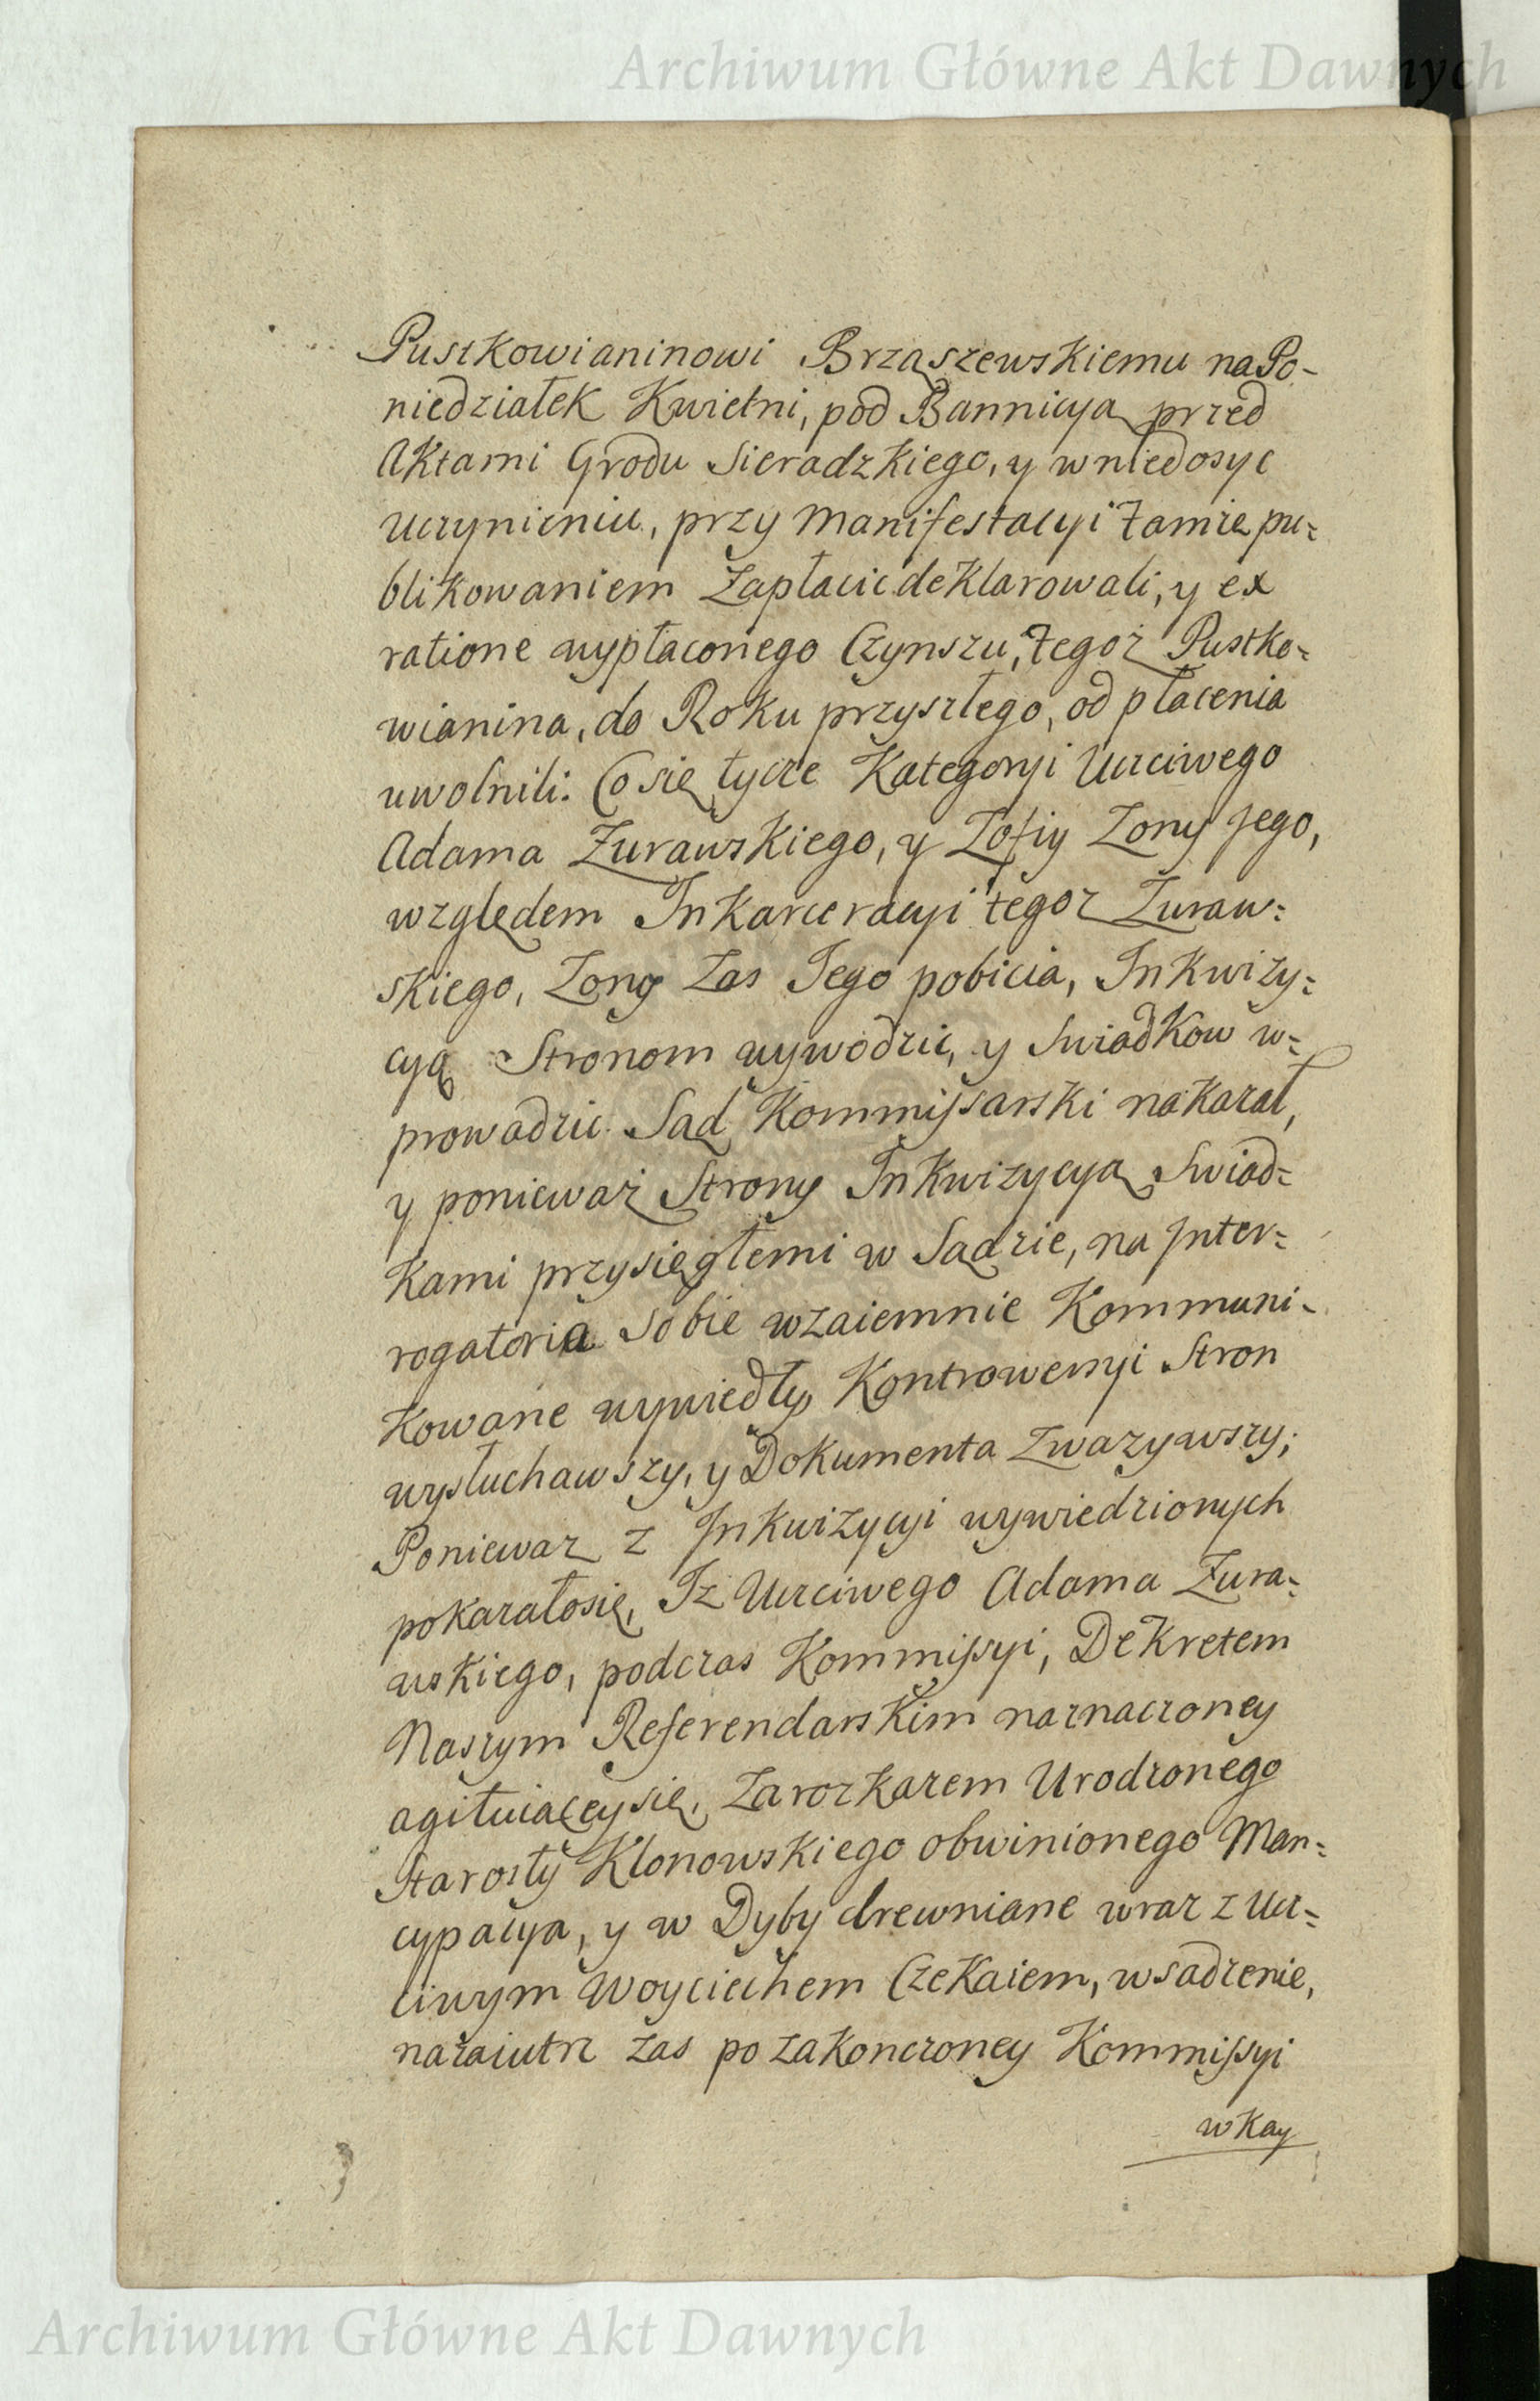 Archiwum Główne Akt Dawnych
Pustkowianinowi Brząszewskiemu na Po-
niedziałek Kwietni, pod Bannicyą przed
Aktami Grodu Sieradzkiego, y w niedosyc
uczynieniu, przy Manifestacyi tamże pu=
blikowaniem zapłacic deklarowali, y ex
ratione wypłaconego Czynszu, tegoż Pustko=
wianina, do Roku przyszłego, od płacenia
uwolnili. Co się tycze Kategoryi Uczciwego
Adama Zurawskiego, y Zofiy Zony Jego,
względem Inkarceracyi tegoz Zuraw=
skiego, Zony Zas Jego pobicia, Inkwizy=
cyą Stronom wywodzic, y Swiadkow w=
prowadzic Sąd Kommissarski nakazał,
y ponieważ Strony Inkwizycyą Swiad=
kami przysięgłemi w Sądzie, na Inter=
rogatoria Sobie wzaiemnie Kommuni-
kowane wywiedły, Kontrowersyi Stron
wysłuchawszy, y Dokumenta Zwazywszy;
Poniewaz z Inkwizycyi wywiedzionych
pokazałosię, Iz Uczciwego Adama Zura=
wskiego, podczas Kommissyi, Dekretem
Naszym Referendarskim naznaczoney
agituiącey się, Zarozkazem Urodzonego
Starosty Klonowskiego obwinionego Man=
cypacya, y w Dyby drewniane wraz z Ucz=
ciwym Woyciechem Czekaiem, wsadzenie,
nazaiutrz zas po zakonczoney Kommissyi
w Kay
Archiwum Główne Akt Dawnych